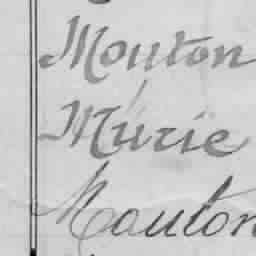 Mouton
Múrie
Mouton